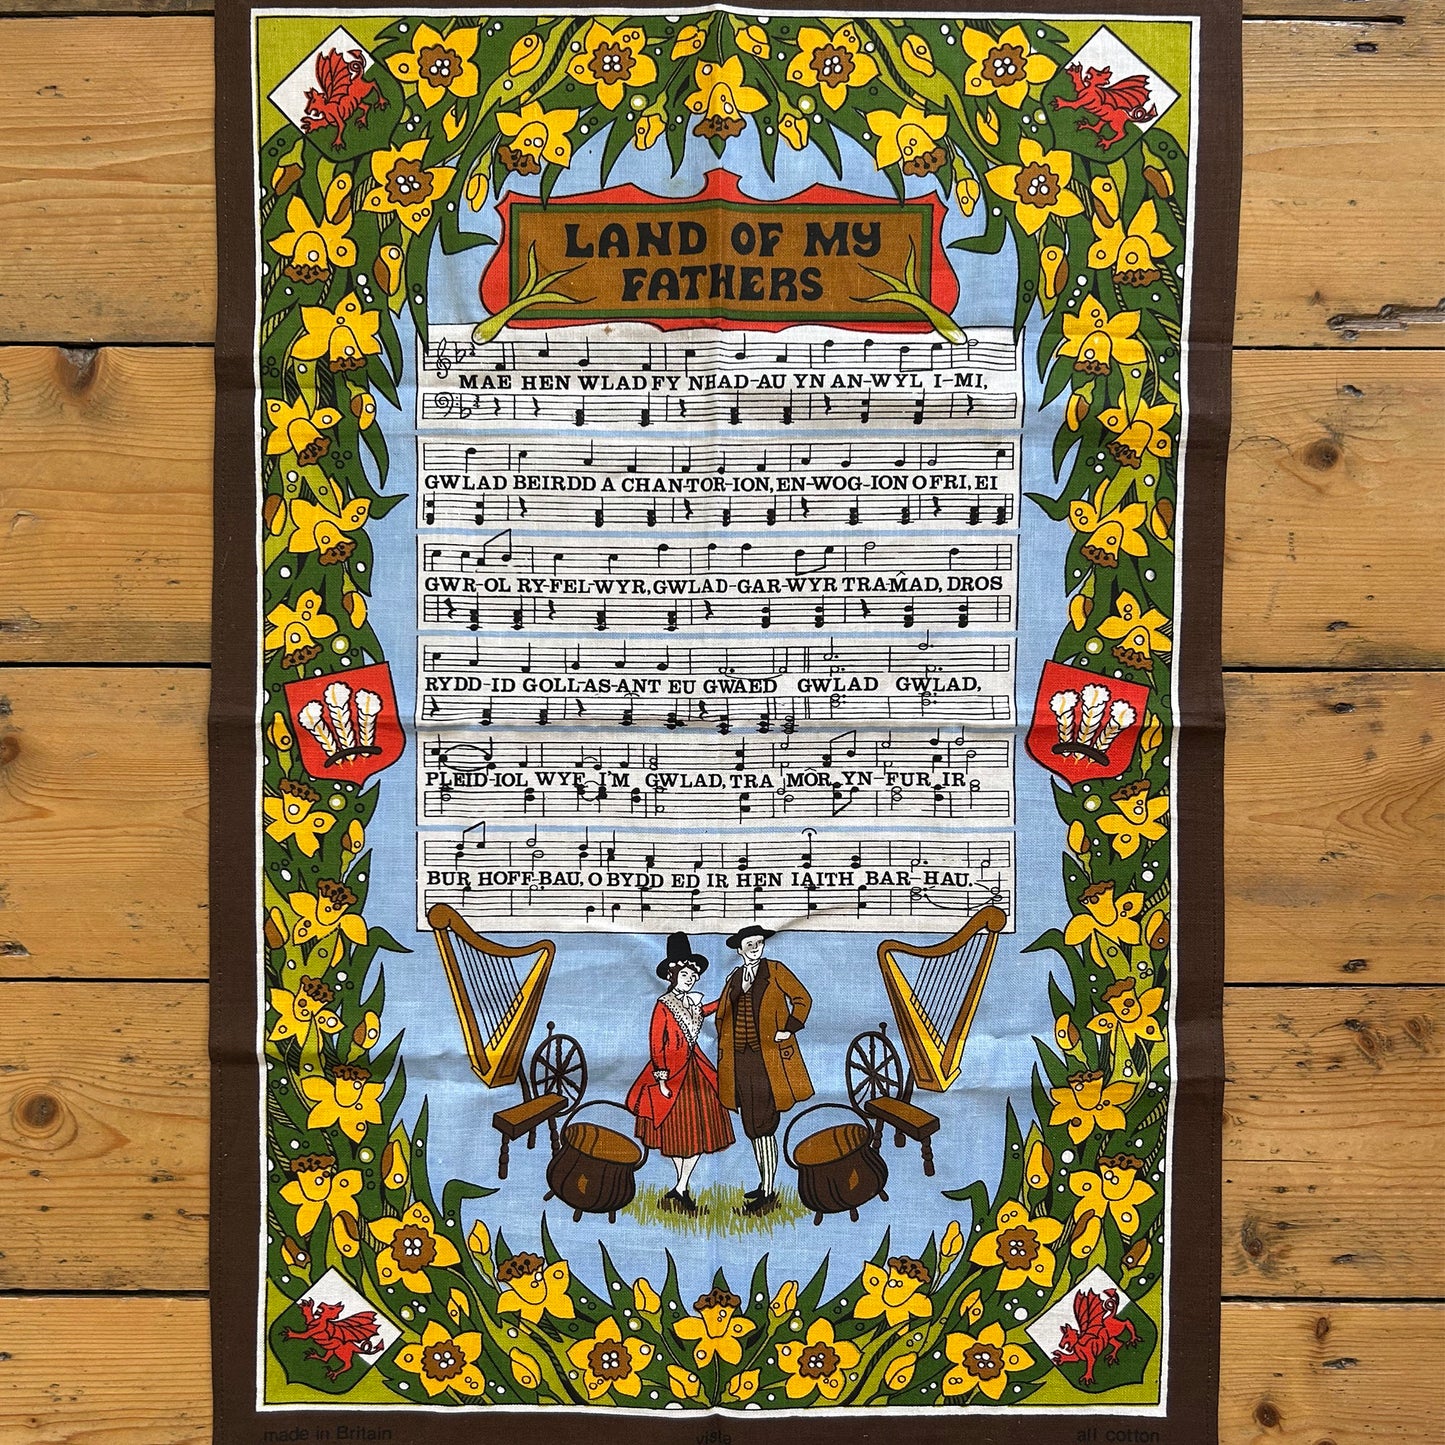 LAND OF MY
FATHERS
MAE HEN WLAD FY NHAD-AU YN AN-WYL I-MI,
GWLAD BEIRDD A CHAN-TOR-ION, EN-WOG-ION O FRI, EI
GWR-OL RY-FEL-WYR, GWLAD-GAR-WYR TRA-M̂AD, DROS
RYDD-ID GOLL-AS-ANT EU GWAED GWLAD GWLAD,
PLEID-IOL WYF I'M GWLAD, TRA MÔR YN-FUR IR
BUR HOFF-BAU, O BYDD ED IR HEN IAITH BAR-HAU.
made in Britain vista all cotton